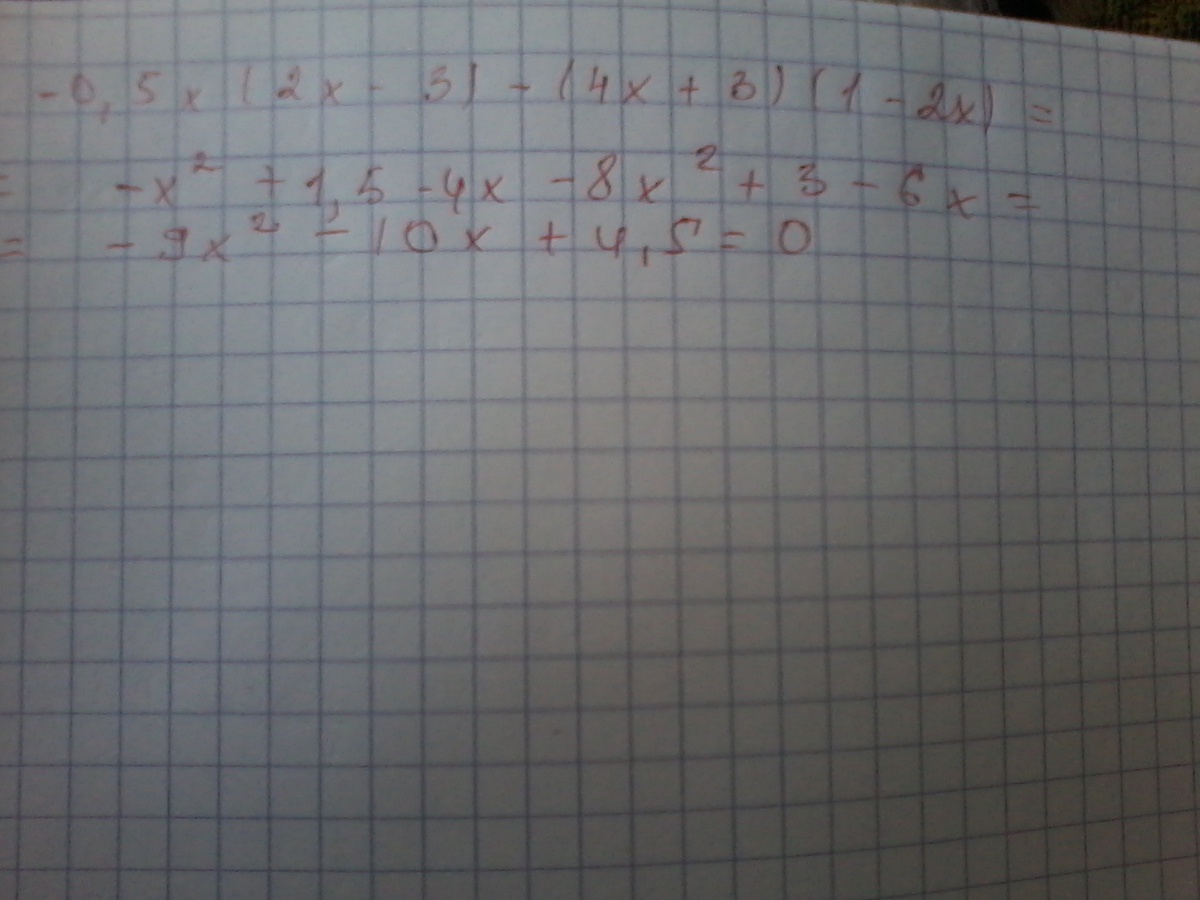 -0,5x(2x-3)-(4x+3)(1-2x)=
= -x²+1,5-4x-8x²+3-6x=
= -9x²-10x+4,5=0